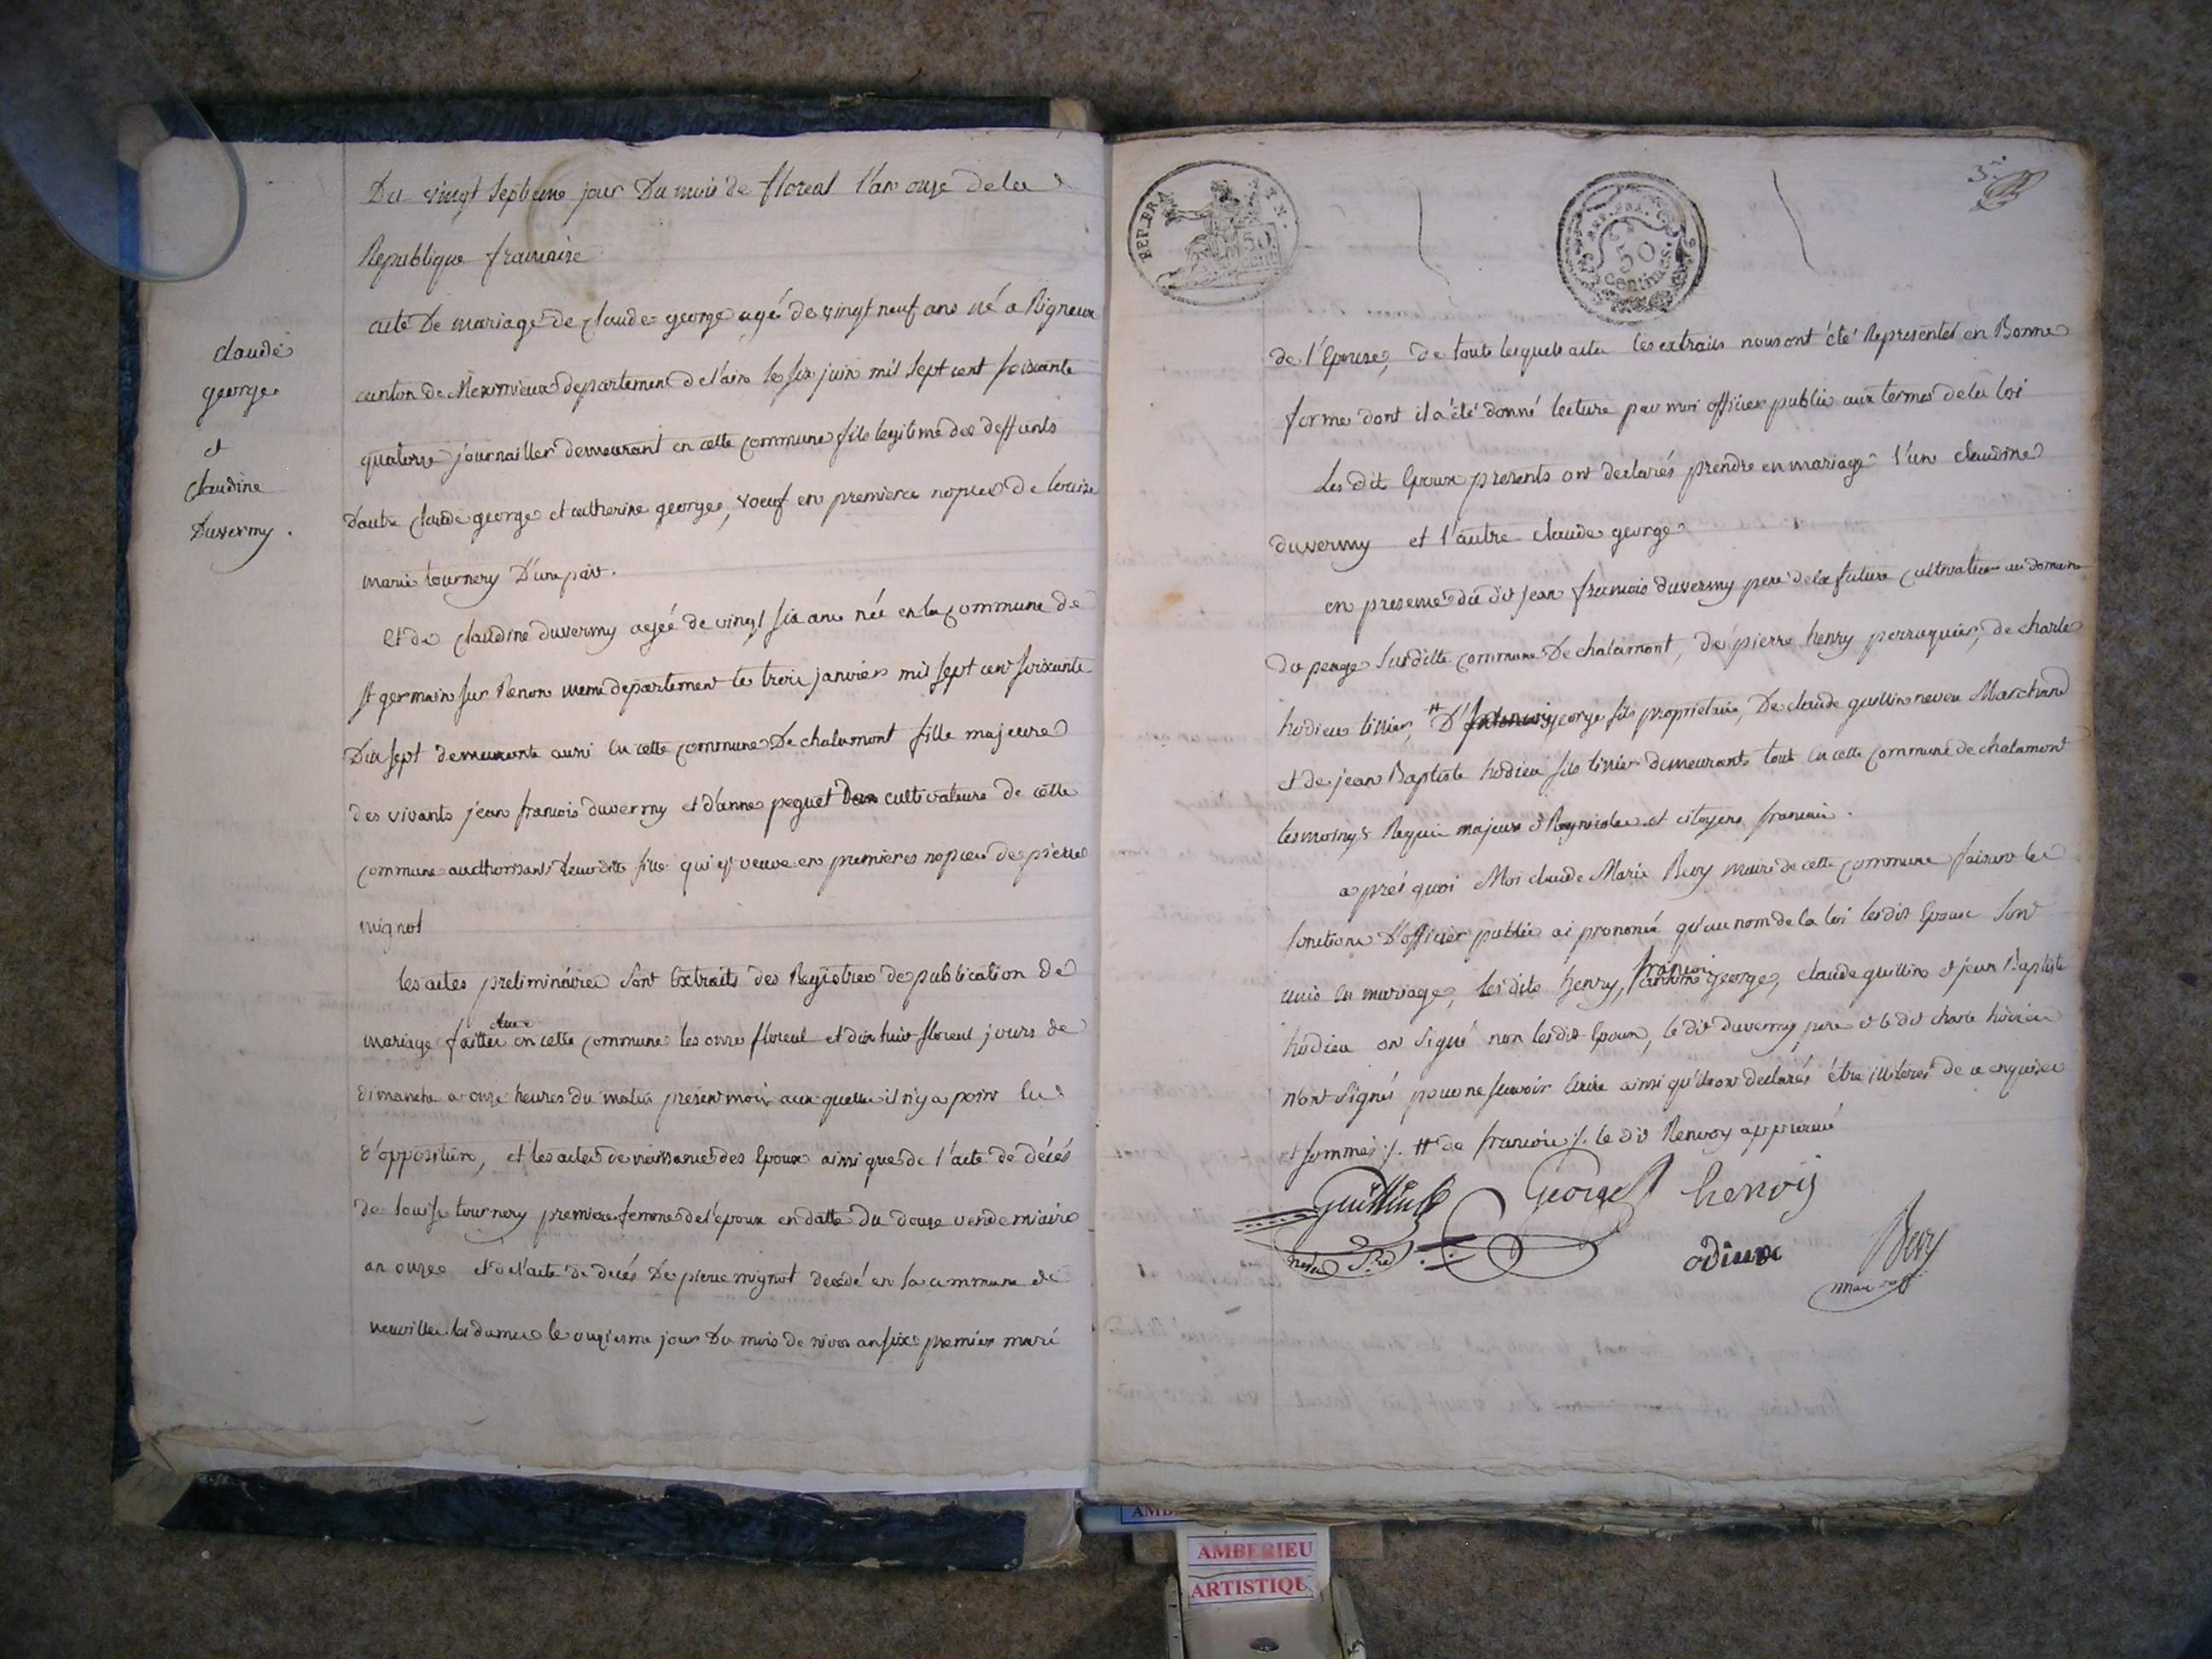 claude
george
et
claudine
Duvermy .
Du vingt septieme jour Du mois de floreal l'an onze de la
Republique francaise
acte De mariage de Claude george agé de vingt neuf ans né a Rigneux
canton de Meximieux departement de l'ain le six juin mil sept cent soixante
quatorze journallier demeurant en cette commune fils legitime des deffunts
d'autre Claude george et catherine george, voeuf en premiere nopces de louise
marie tournery D'une part .
et de Claudine duvermy agéé de vingt six ans née en la commune de
st germain sur Renon meme departement le trois janvier mil sept cent soixante
Dix sept demeurante aussi en cette commune De chalamont fille majeure
des vivants jean francois duvermy et d'anne peguet cultivateurs de cette
commune aucthorisants leur ditte fille qui est veuve en premieres nopces de pierre
mignot
les actes preliminaires sont extraits des Registres de publication de
mariage faittes en cette commune les onze floreal et dix huit floreal jours de
dimanche a onze heures du matin present moi aux quelles il n'y a point eu
d'opposition, et les actes de naissance des epoux ainsi que de l'acte de décés
de louise tournery premiere femme de l'epoux en datte du douze vendemiaire
an onze et de l'acte de decés De pierre mignot decedé en la commune de
neuville les dames le onziesme jour Du mois de nivos an six premier mari
REP. FRA. 50
REP. FRA. 50 Centimes.
3.
de l'Epouse, de toute lesquels actes les extraits nous ont été Representés en Bonne
forme dont il a été donné lecture par moi officier public aux termes de la loi
Les dit Epoux presents ont declarés prendre en mariage l'un claudine
duvermy et l'autre claude george
en presence du dit jean francois duvermy pere de la future cultivateur au domaine
du peage susditte commune De chalamont, de pierre henry perruquier, de charle
hodieu tissier, # D' george fils proprietaire, De claude guillin neveu Marchand
et de jean Baptiste hodieu fils tissier demeurants tout en cette commune de chalamont
tesmoings Requis majeurs et Regnicoles et citoyens francais .
aprés quoi Moi claude Marie Bevy maire de cette commune faisant les
fonctions D'officier public ai prononcé qu'au nom de la loi lesdit Epoux sont
unis en mariage, lesdits henry, francois george, claude guillin et jean Baptiste
hodieu on signé non lesdit Epoux, le dit duvermy pere et le dit charle hodieu
n'ont signés pour ne scavoir ecrire ainsi qu'ils ont declarés étre illiterés de ce enquises
et sommés ./. # de francois ./. le dit Renvoy approuvé
Guillin
George henry
odieux Bevy
maire
AMBERIEU
ARTISTIQU